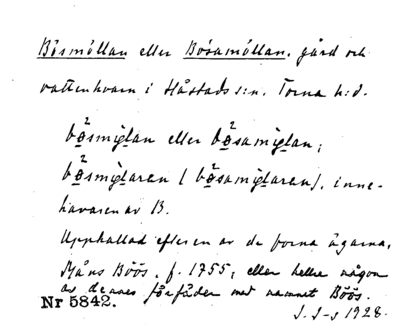 Bösmöllan eller Bösamöllan. gård och
vattenkvarn i Håstads s:n. Torna h:d.
bø²smiglan eller bø²samiglan;
bø²smiglaren (bø²samiglaren), inne-
havaren av B.
Uppkallad efter en av de forna ägarna,
Måns Böös. f. 1755; eller hellre någon
av dennes förfäder med namnet Böös.
Nr 5842.
I. I-s 1928.